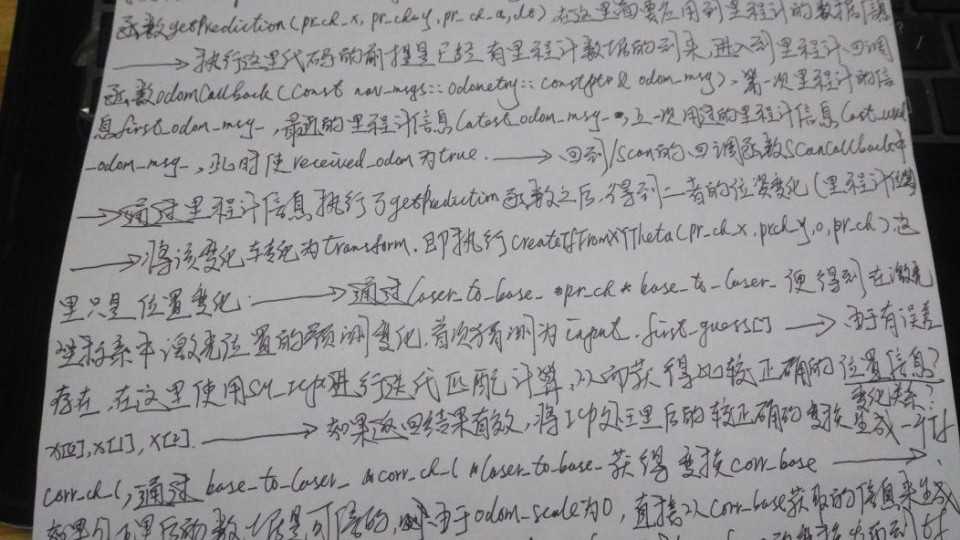 函数getPrediction(pr_ch_x, pr_ch_y, pr_ch_a, dt) 在这里面要应用到里程计的数据信息
——→执行这里代码的前提是已经有里程计数据的到来,进入到里程计回调
函数odomCallback(const nav_msgs::Odometry::ConstPtr& odom_msg)、第一次里程计的信
息first_odom_msg_,最近的里程计信息latest_odom_msg_,上一次用过的里程计信息last_used
_odom_msg_,此时使received_odom为true. ——→回到/scan的回调函数scanCallback中
——→通过里程计信息执行了getPrediction函数之后,得到二者的位姿变化(里程计
——→将该变化转化为transform.即执行createTfFromXYTheta(pr_ch_x, pr_ch_y, 0, pr_ch),这
里只是位置变化.——→通过laser_to_base_*pr_ch*base_to_laser_便得到在激光
坐标系中激光位置的预测变化.首次预测为input.first_guess[] ——→ 由于有误差
存在,在这里使用SM_ICP进行迭代匹配计算,从而获得比较正确的位置信息?
变化关系?
x[0], x[1], x[2]. ——→ 如果返回结果有效,将ICP处理后的较正确的变换生成一个tf
corr_ch_l,通过base_to_laser_*corr_ch_l*laser_to_base_获得变换corr_base ——→
由于odom_scale为0,直接以corr_base获取的信息来生成